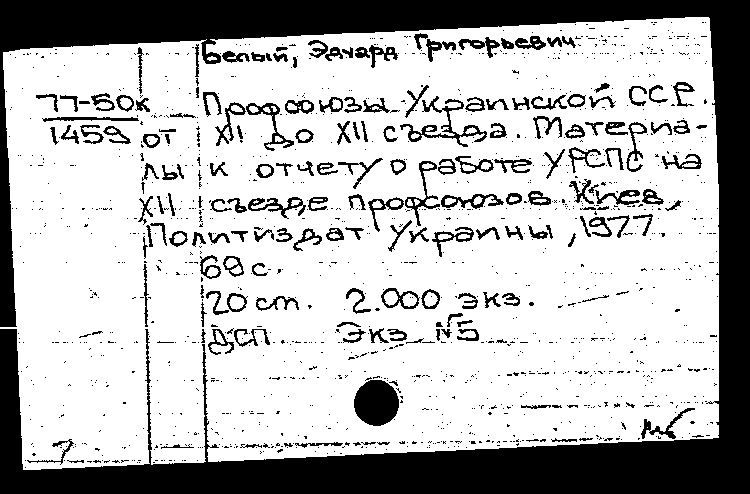 Белый, Эдуард Григорьевич
77-50к Профсоюзы Украинской ССР.
1459 от XII до XII съезда. Материа-
лы к отчету о работе УРСПС на
XII съезде профсоюзов. Киев,
Политиздат Украины, 1977.
69 с.
20 cm. 2.000 экз.
ДСП. Экз №5